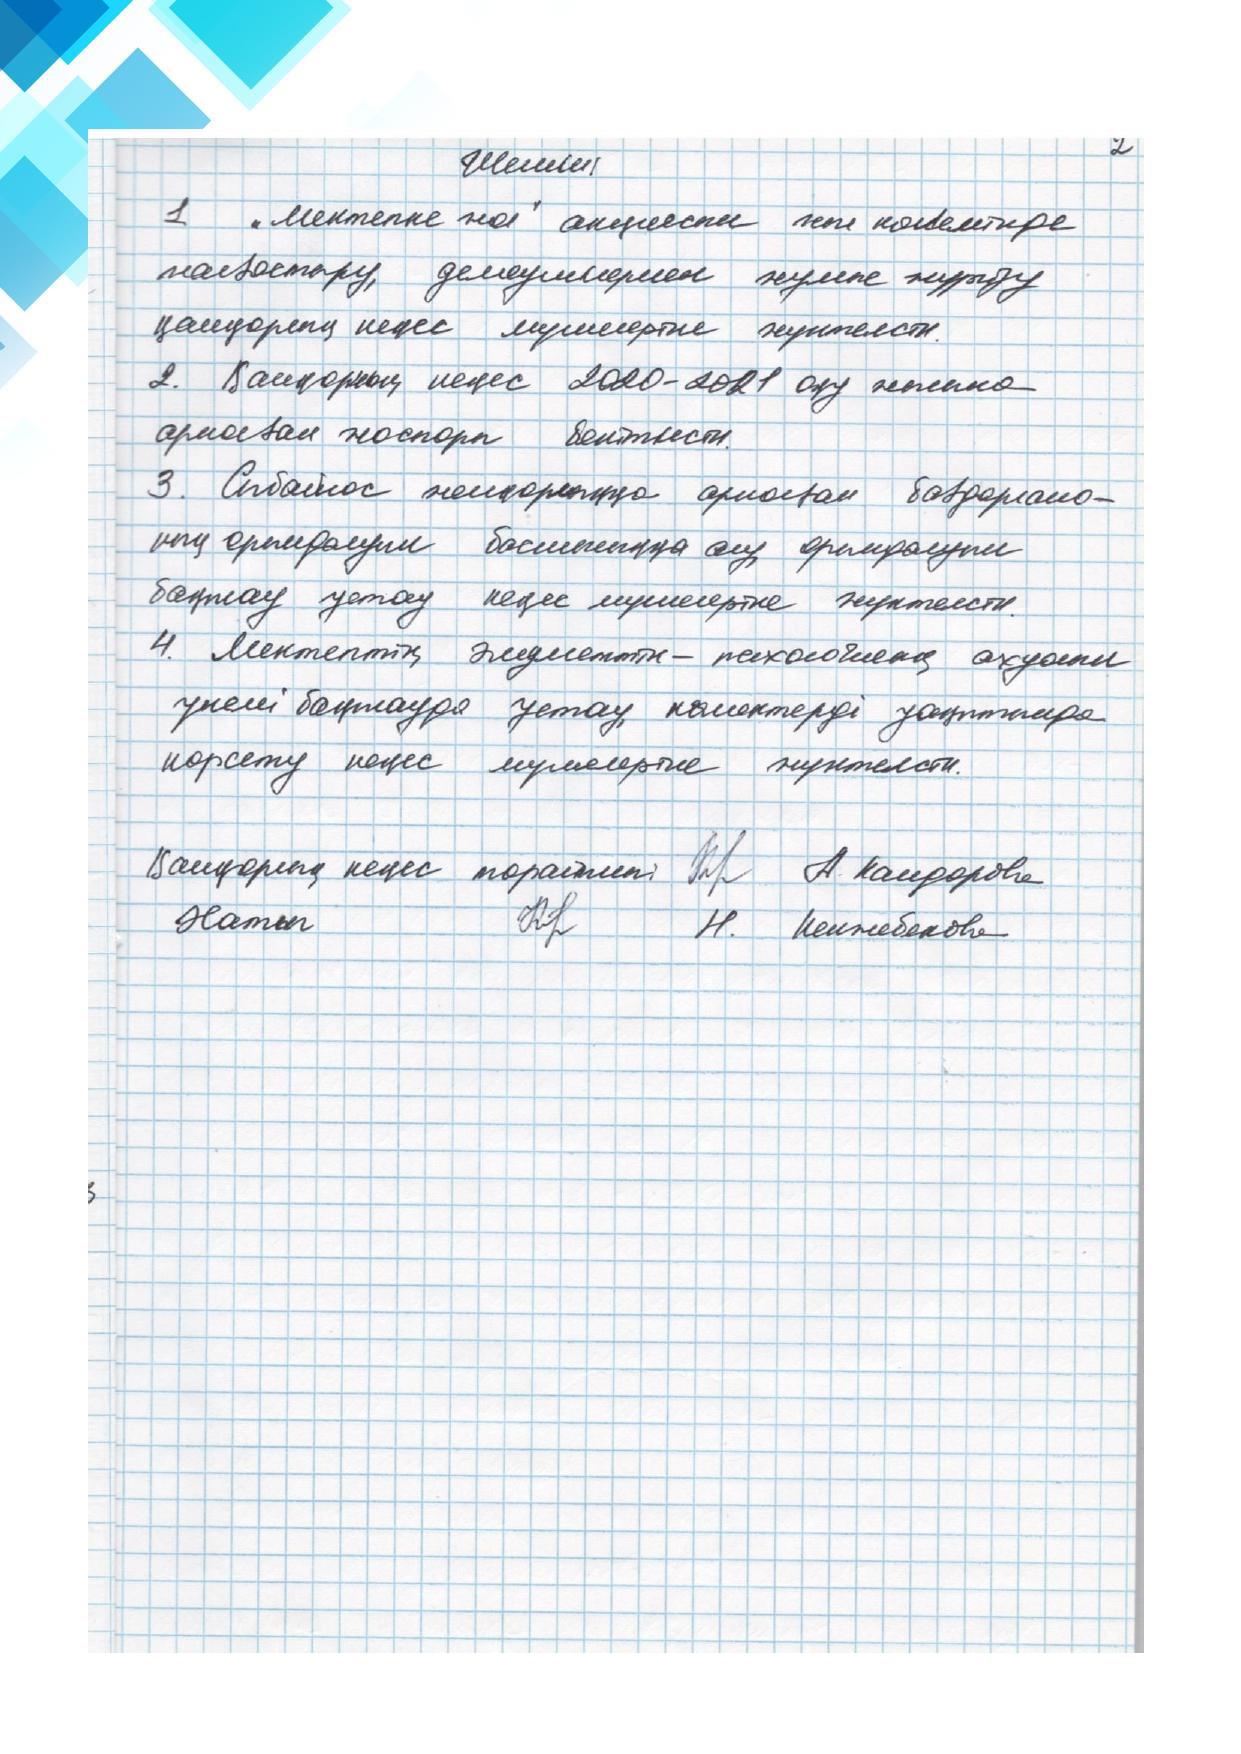 2
Шешімі
1 "Мектепке жол" акциясын жыл көлемінде
жалғастыру, демеушілермен жұмыс жүргізу
қамқорлық кеңес мүшелеріне жүктелсін.
2. Қамқорлық кеңес 2020-2021 оқу жылына
арналған жоспары бекітілсін.
3. Сыбайлас жемқорлыққа арналған бағдарлама-
ның орындалуын басшылыққа алу, орындалуын
бақылау ұстау кеңес мүшелеріне жүктелсін.
4. Мектептің әлеуметтік-психологиялық ахуалын
үнемі бақылауда ұстау, көмектерді уақытында
көрсету кеңес мүшелеріне жүктелсін.
Қамқорлық кеңес төрайымы А. Кайдарова
Хатшы Н. Кенжебекова
3